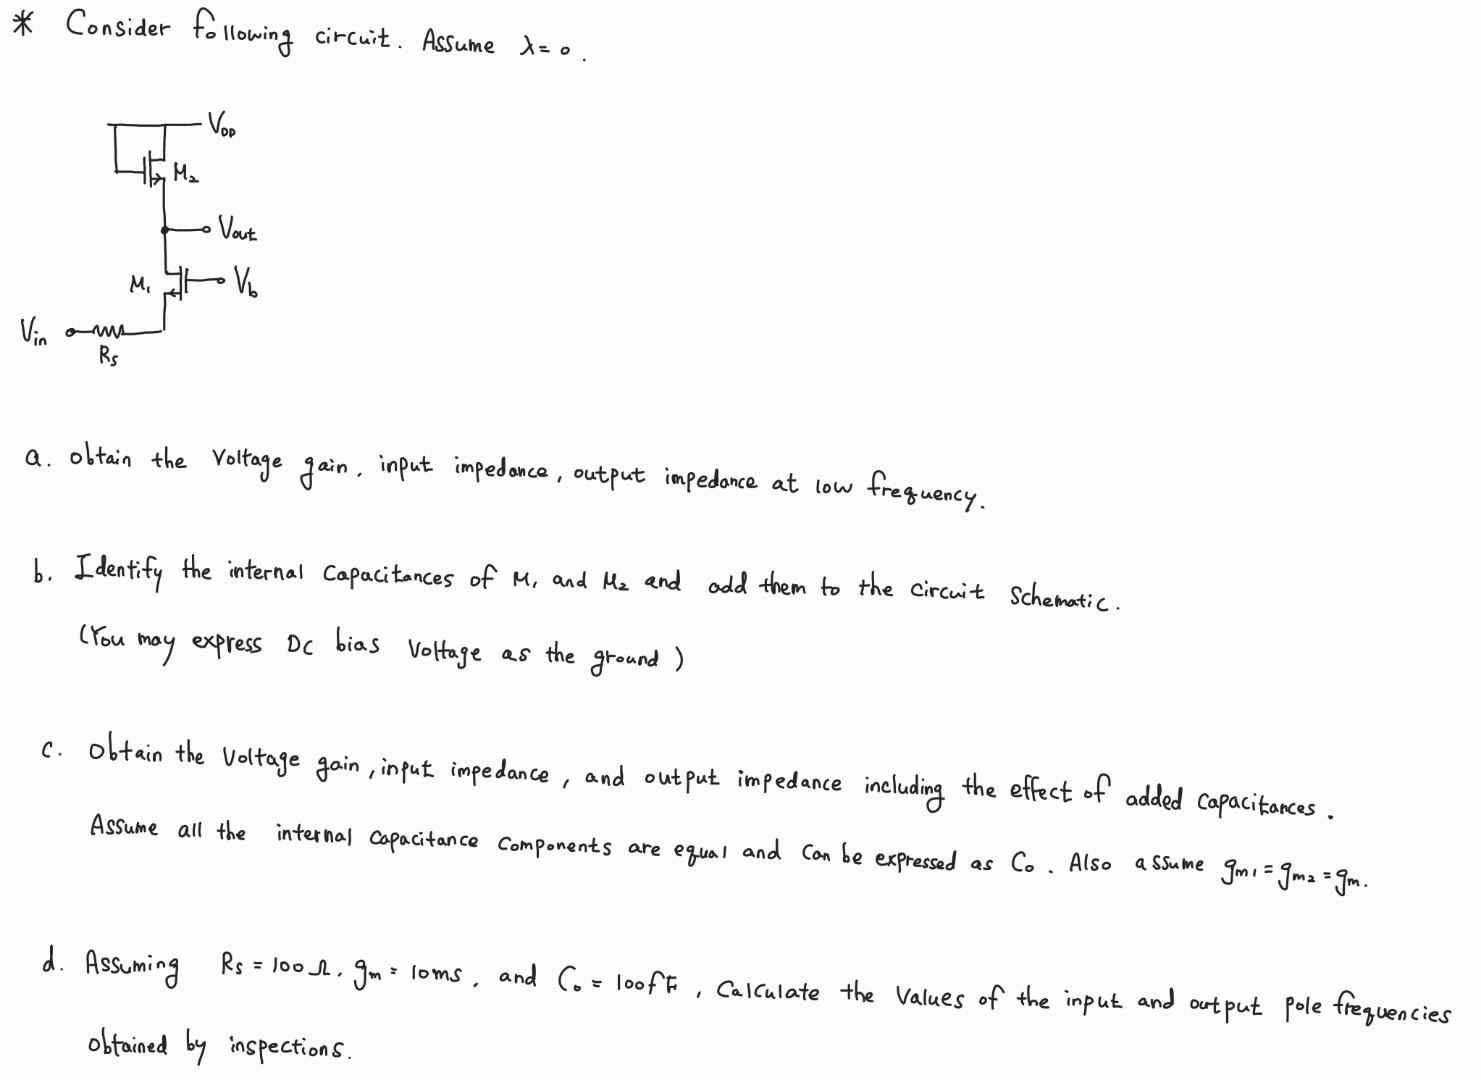 * Consider following circuit. Assume λ=0.
VDD
M2
Vout
M1
Vb
Vin
Rs
a. obtain the voltage gain, input impedance, output impedance at low frequency.
b. Identify the internal capacitances of M1 and M2 and add them to the circuit schematic.
(You may express DC bias voltage as the ground)
c. obtain the voltage gain, input impedance, and output impedance including the effect of added capacitances.
Assume all the internal capacitance components are equal and can be expressed as Co. Also assume gm1 = gm2 = gm.
d. Assuming Rs = 100Ω, gm = 10ms, and Co = 100fF, calculate the values of the input and output pole frequencies
obtained by inspections.